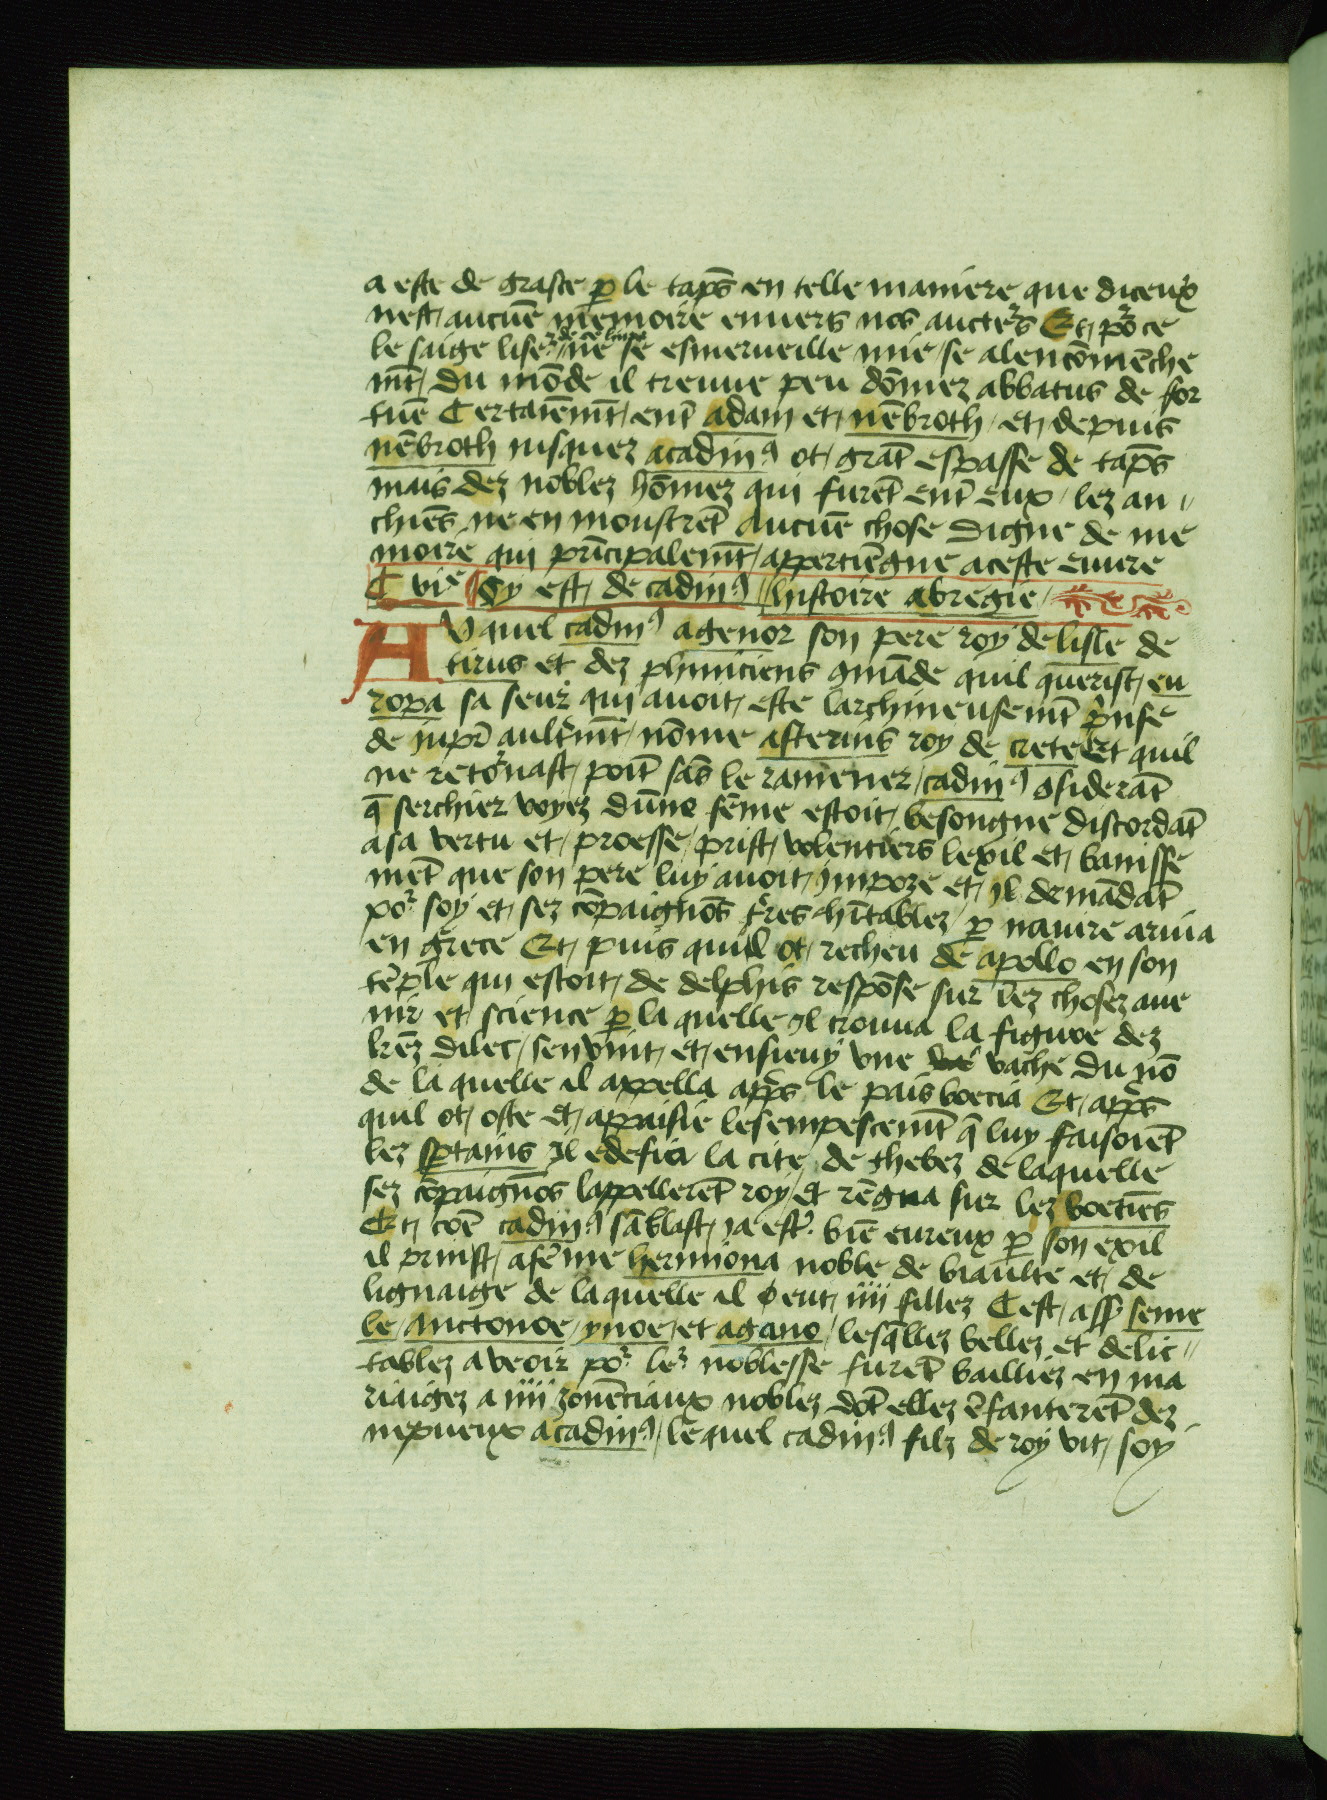 a este de graste p̱ le tap̄s en telle maniere que diceux
nest aucūe memoire enuers nos aucteʳs Et poʳ ce
le saige liseʳ de ce liure ne se esmerueille mie se alencōmēche
mēt du mōde il treuue peu dōmez abbatus de for
tūe Certaiēmēt ent̄ adam et nēbroth et depuis
nēbroth iusquez a cadmꝰ ot grāt espasse de tap̄s
mais dez noblez hōmez qui furēt ent̄ eux lez an
chiēs ne en moustrēt aucūe chose digne de me
moire qui prīcipalemēt appertiēgne a ceste euure
C viᵉ Cy est de cadmꝰ histoire abregie
AUquel cadmꝰ agenor son pere roy de lisle de
tirus et dez pheniciens ꝯmāde quil querist eu
ropa sa seur qui auoit este larchineusemēt prinse
de jupit̄ aultᵉmēt nōme asterius roy de crete Et quil
ne retoʳnast poīt sās le ramener cadmꝰ ꝯsiderāt
q̄ serchier voyez dūne fēme estoit besongne discordāt
a sa vertu et proesse prist volentiers lexil et banisse
mēt que son pere luy auoit jmpoze et jl demādāt
poʳ soy et sez cōpaignōs t̄res h̄itablez p̱ nauire ariua
en grece Et puis quil ot recheu de apollo en son
tēple qui estoit de delphis respōse sur lez chosez aue
nir et science p̱ la quelle jl trouua la figure dez
lrēz dilec sen vint et ensieuy vne vache du nō
de la quelle il appella app̄s le pais boecia Et app̄s
quil ot oste et appaisie lesempescemēt q̄ luy faisoiēt
lez sp̱tains Jl edefia la cite de thebez de laquelle
sez cōpaignōs lappellerēt roy et rēgna sur lez boetiēs
Et cōe cadmꝰ sāblast ja estᵉ biē eureux p̱ son exil
il prinst a fēme hermiona noble de biaulte et de
lignaige de laquelle il eut iiii fillez Cest ass̄ seme
le Auctonoe ynoe et agano lesq̄llez bellez et delic
tablez a veoir poʳ leʳ noblesse furēt bailliez en ma
riaigez a iiii jouēciaux noblez dōt ellez ēfanterēt dez
nepueux a cadmꝰ lequel cadmꝰ filz de roy vit soy